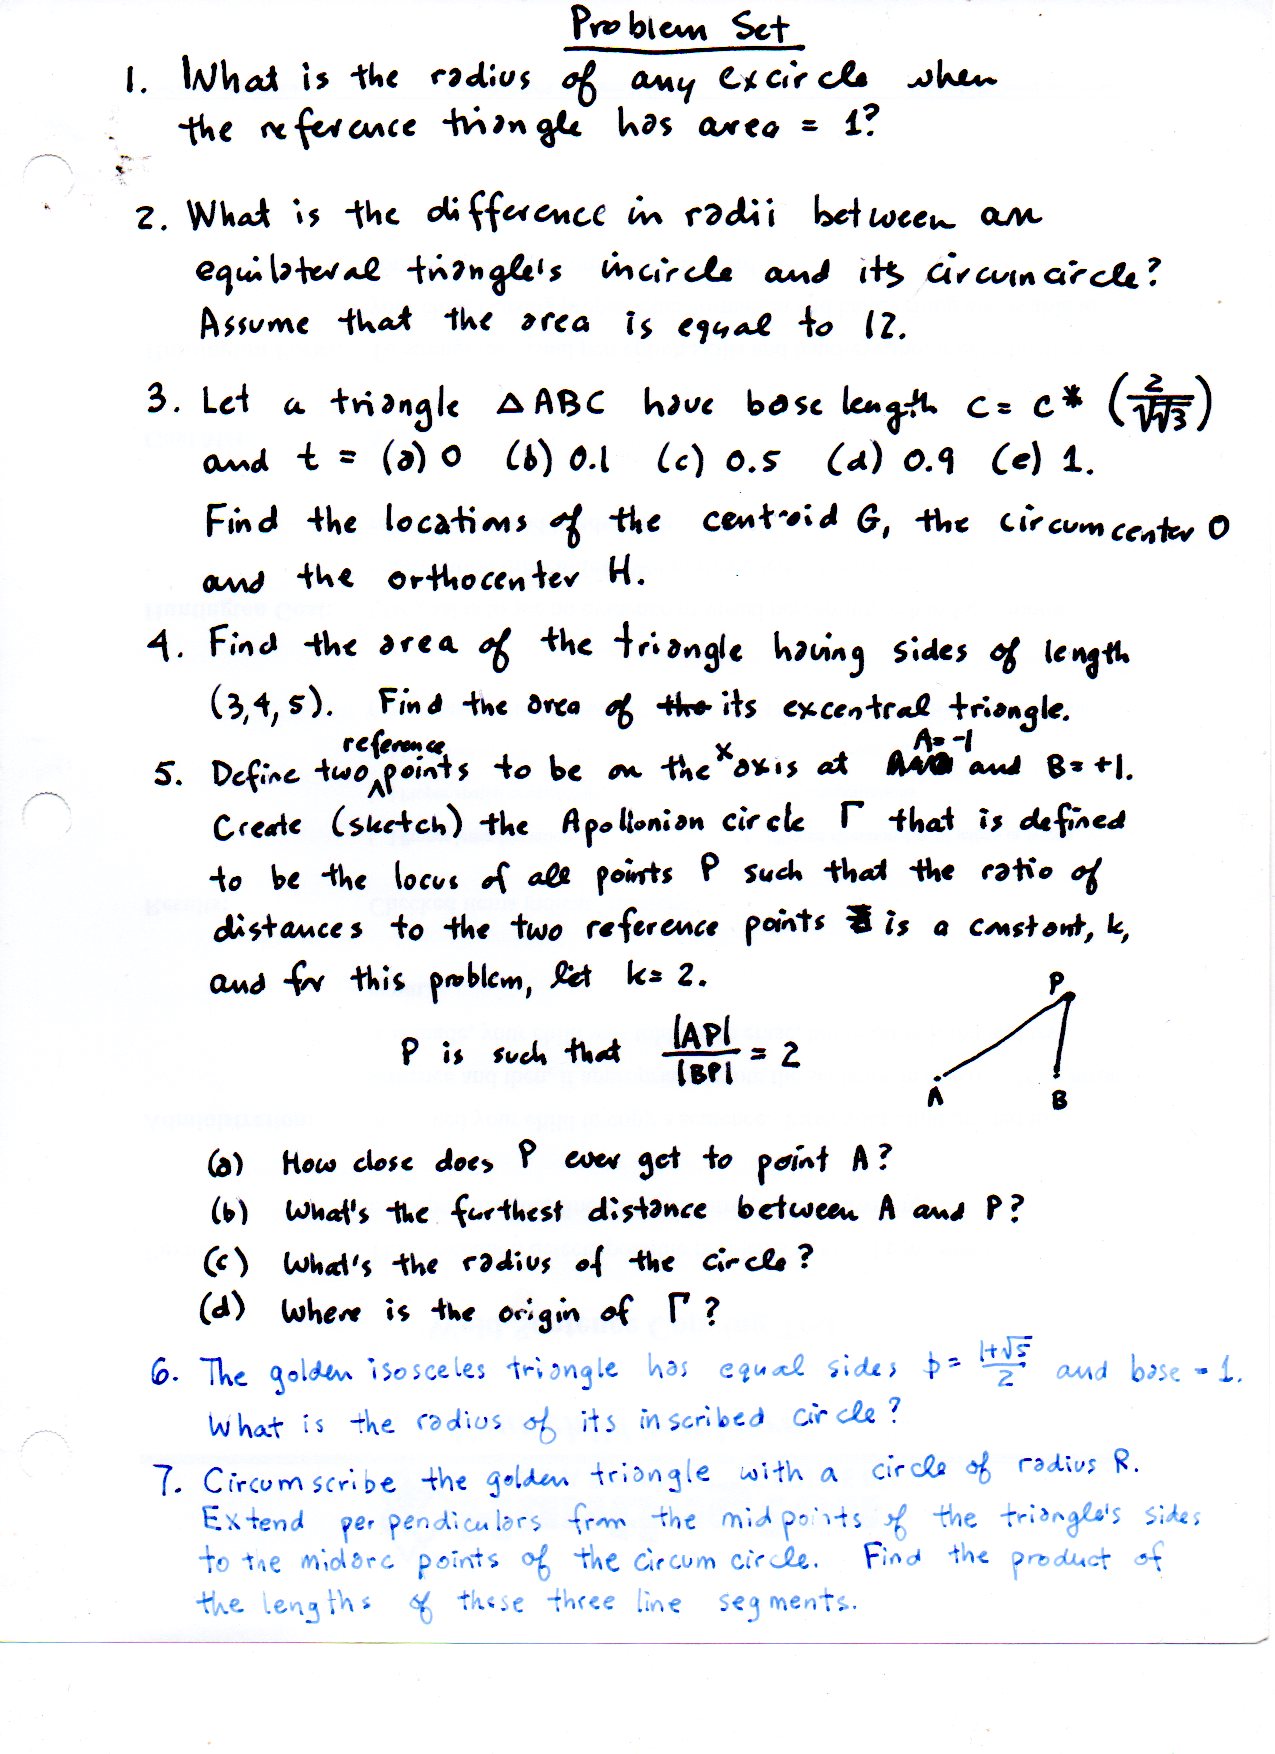 Problem Set
1. What is the radius of any excircle when
the reference triangle has area = 1?
2. What is the difference in radii between an
equilateral triangle's incircle and its circumcircle?
Assume that the area is equal to 12.
3. Let a triangle △ABC have base length c = c* (2/√√3)
and t = (a) 0 (b) 0.1 (c) 0.5 (d) 0.9 (e) 1.
Find the locations of the centroid G, the circumcenter O
and the orthocenter H.
4. Find the area of the triangle having sides of length
(3,4,5). Find the area of the its excentral triangle.
reference x A=-1
5. Define two points to be on the axis at and B=+1.
Create (sketch) the Apollonian circle Γ that is defined
to be the locus of all points P such that the ratio of
distances to the two reference points is a constant, k,
and for this problem, let k=2.
P
P is such that |AP|/|BP| = 2
A B
(a) How close does P ever get to point A?
(b) What's the furthest distance between A and P?
(c) What's the radius of the circle?
(d) Where is the origin of Γ?
6. The golden isosceles triangle has equal sides ϕ = 1+√5/2 and base = 1.
What is the radius of its inscribed circle?
7. Circumscribe the golden triangle with a circle of radius R.
Extend perpendiculars from the midpoints of the triangle's sides
to the midarc points of the circumcircle. Find the product of
the lengths of these three line segments.